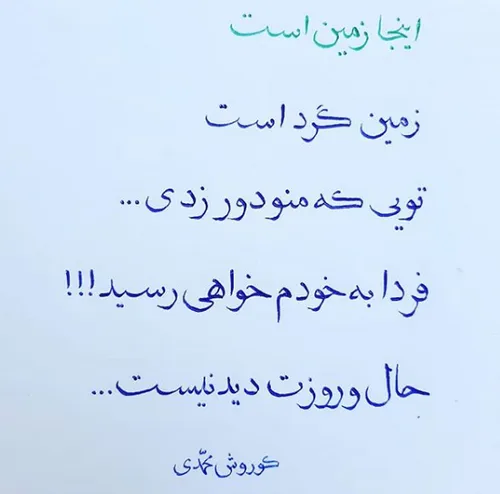 اینجا زمین است
زمین گرد است
تویی که منو دور زدی...
فردا به خودم خواهی رسید!!!
حال و روزت دیدنیست...
کوروش محمّدی